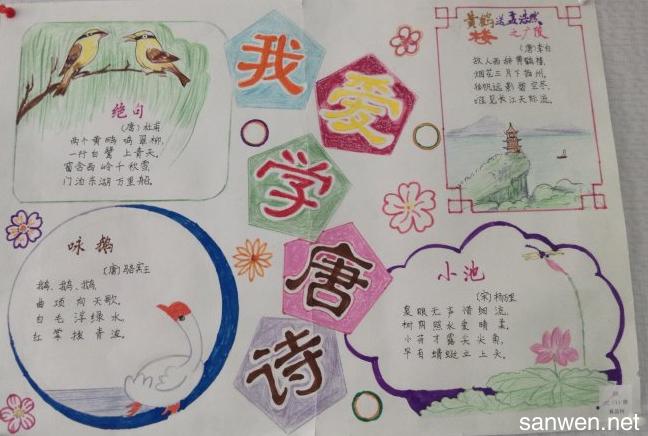 我
爱
学
唐
诗
绝句
(唐)杜甫
两个黄鹂鸣翠柳,
一行白鹭上青天,
窗含西岭千秋雪,
门泊东湖万里船。
黄鹤送孟浩然
楼之广陵
(唐)李白
故人西辞黄鹤楼,
烟花三月下扬州,
孤帆远影碧空尽,
唯见长江天际流。
咏鹅
(唐)骆宾王
鹅、鹅、鹅,
曲项向天歌,
白毛浮绿水,
红掌拨青波。
小池
(宋)杨万里
泉眼无声惜细流,
树阴照水爱晴柔,
小荷才露尖尖角,
早有蜻蜓立上头。
sanwen.net